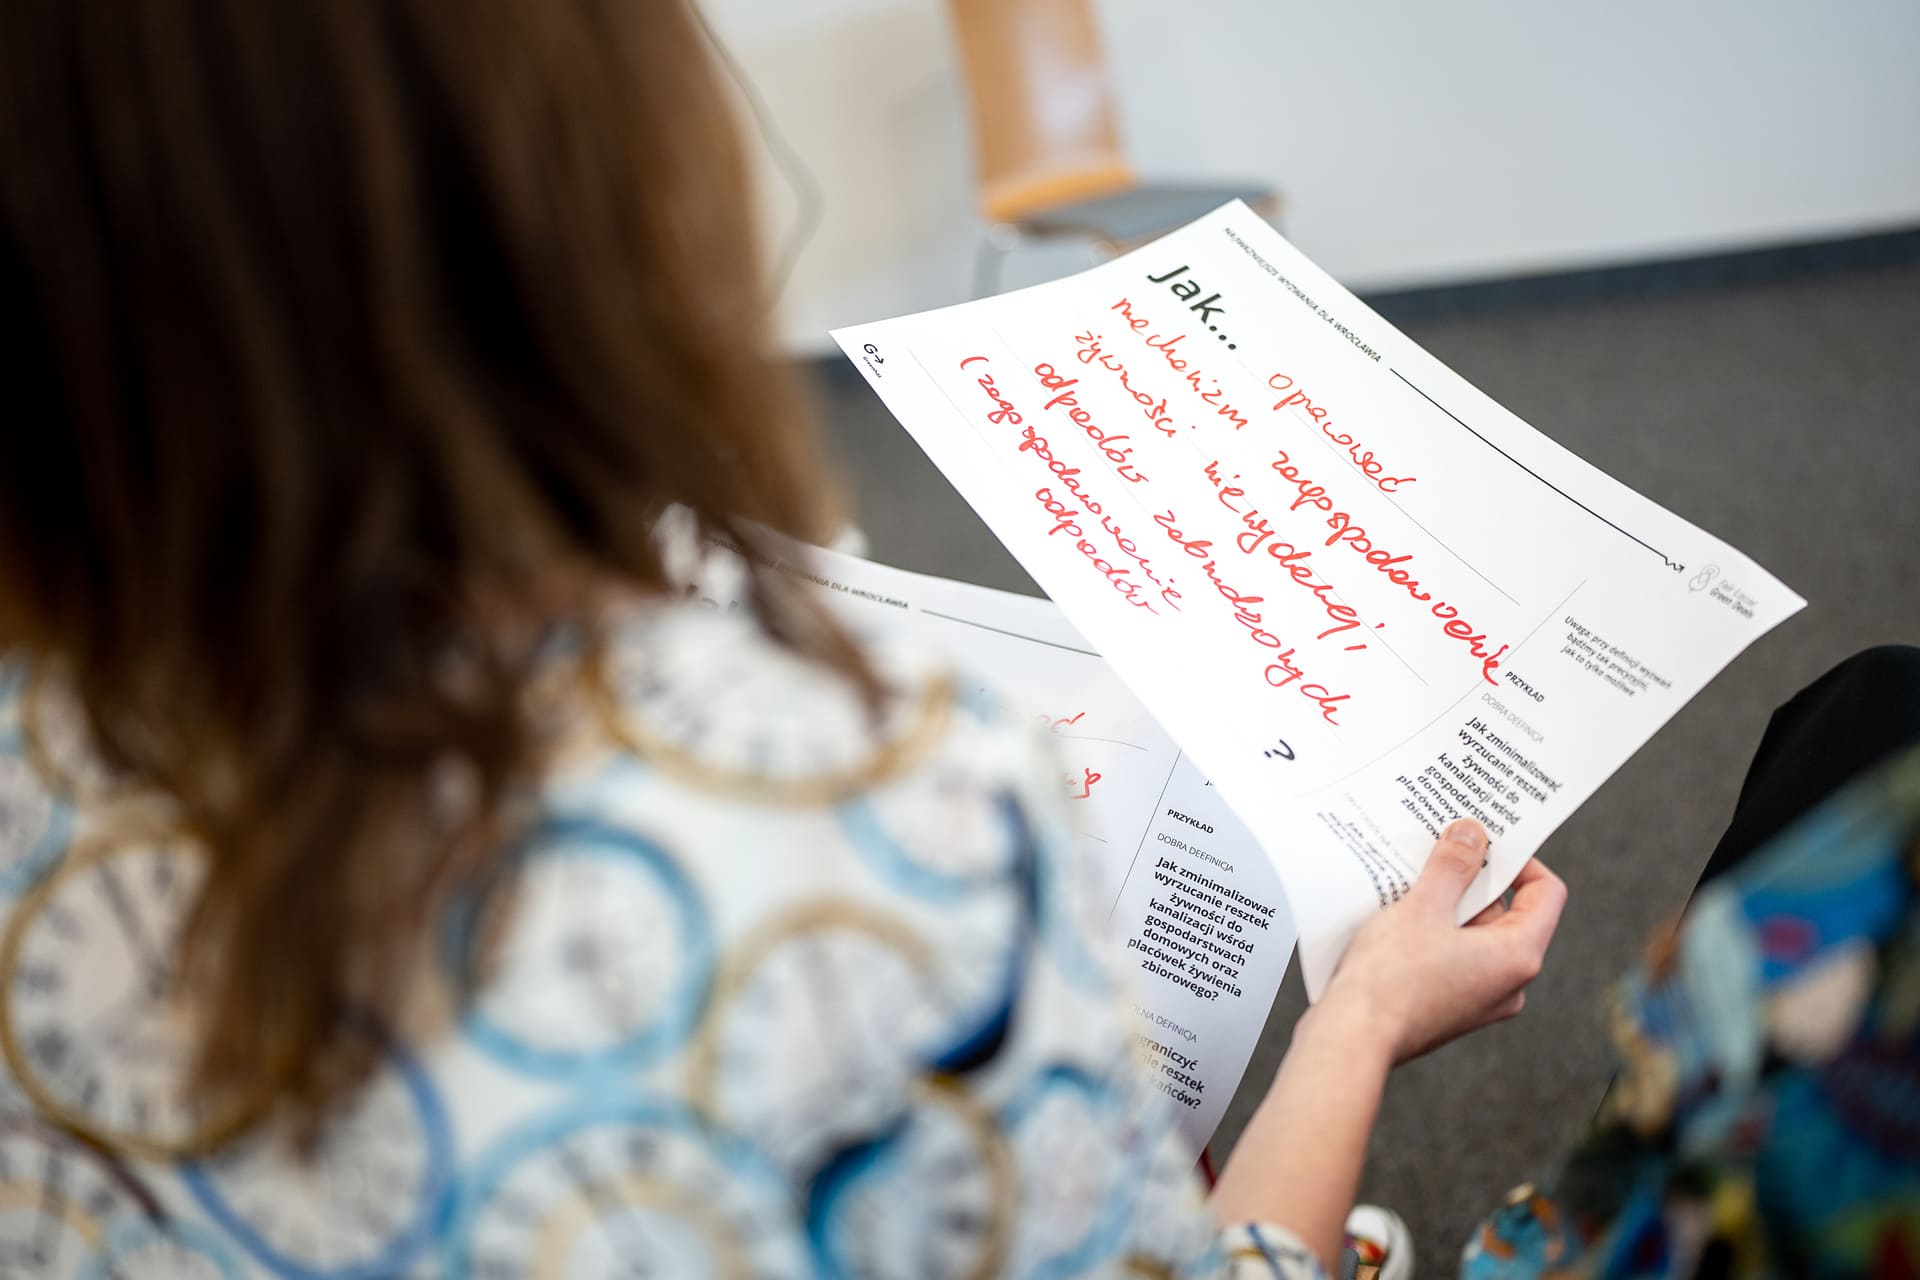 NAJWAŻNIEJSZE WYZWANIA DLA WROCŁAWIA
Jak...
opracować
mechanizm zagospodarowanie
żywności niewydanej i
odpadów zabrudzonych
(zagospodarowanie
odpadów
?
G
Green Deals
Uwaga: przy definicji wyzwań
bądźmy tak precyzyjni,
jak to tylko możliwe
PRZYKŁAD
DOBRA DEEFINICJA
Jak zminimalizować
wyrzucanie resztek
żywności do
kanalizacji wśród
gospodarstwach
domowy
placówek
zbiorow
WYZWANIA DLA WROCŁAWIA
ać
PRZYKŁAD
DOBRA DEEFINICJA
Jak zminimalizować
wyrzucanie resztek
żywności do
kanalizacji wśród
gospodarstwach
domowych oraz
placówek żywienia
zbiorowego?
LNA DEFINICJA
ograniczyć
nie resztek
kańców?